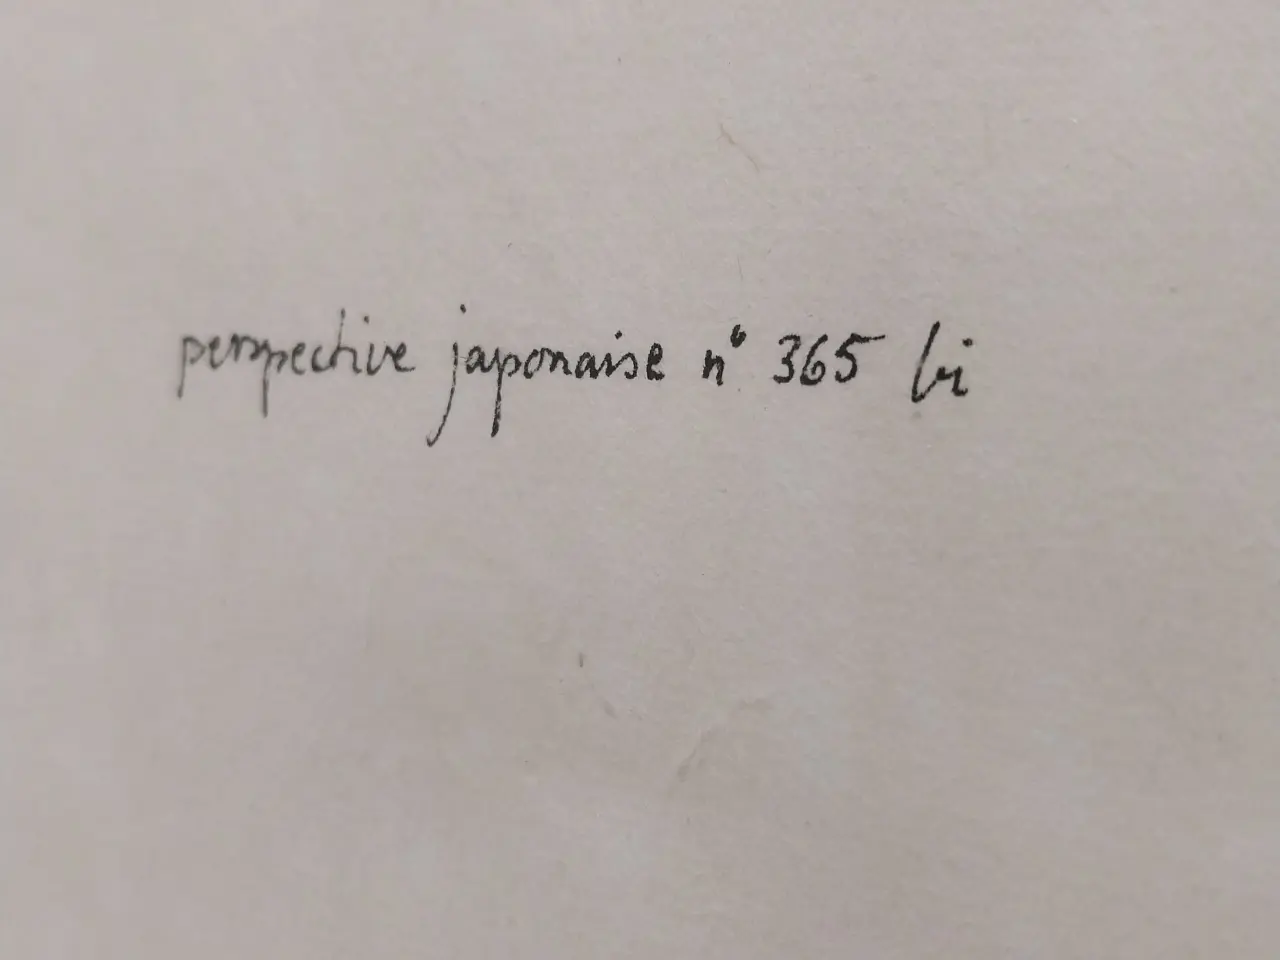 perspective japonaise n° 365 bi